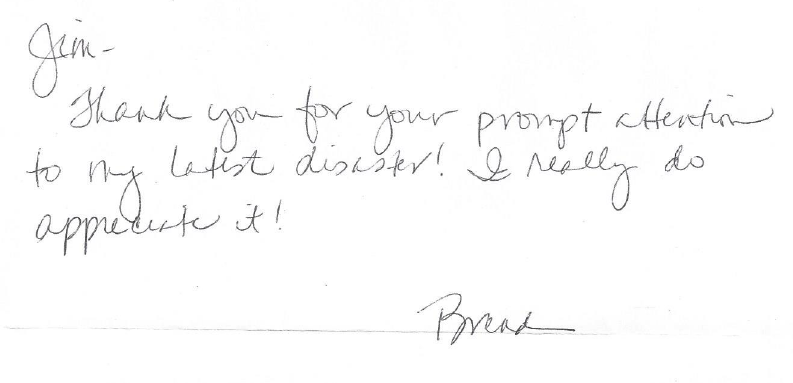 Jim-
Thank you for your prompt attention
to my latest disaster! I really do
appreciate it!
Brenda